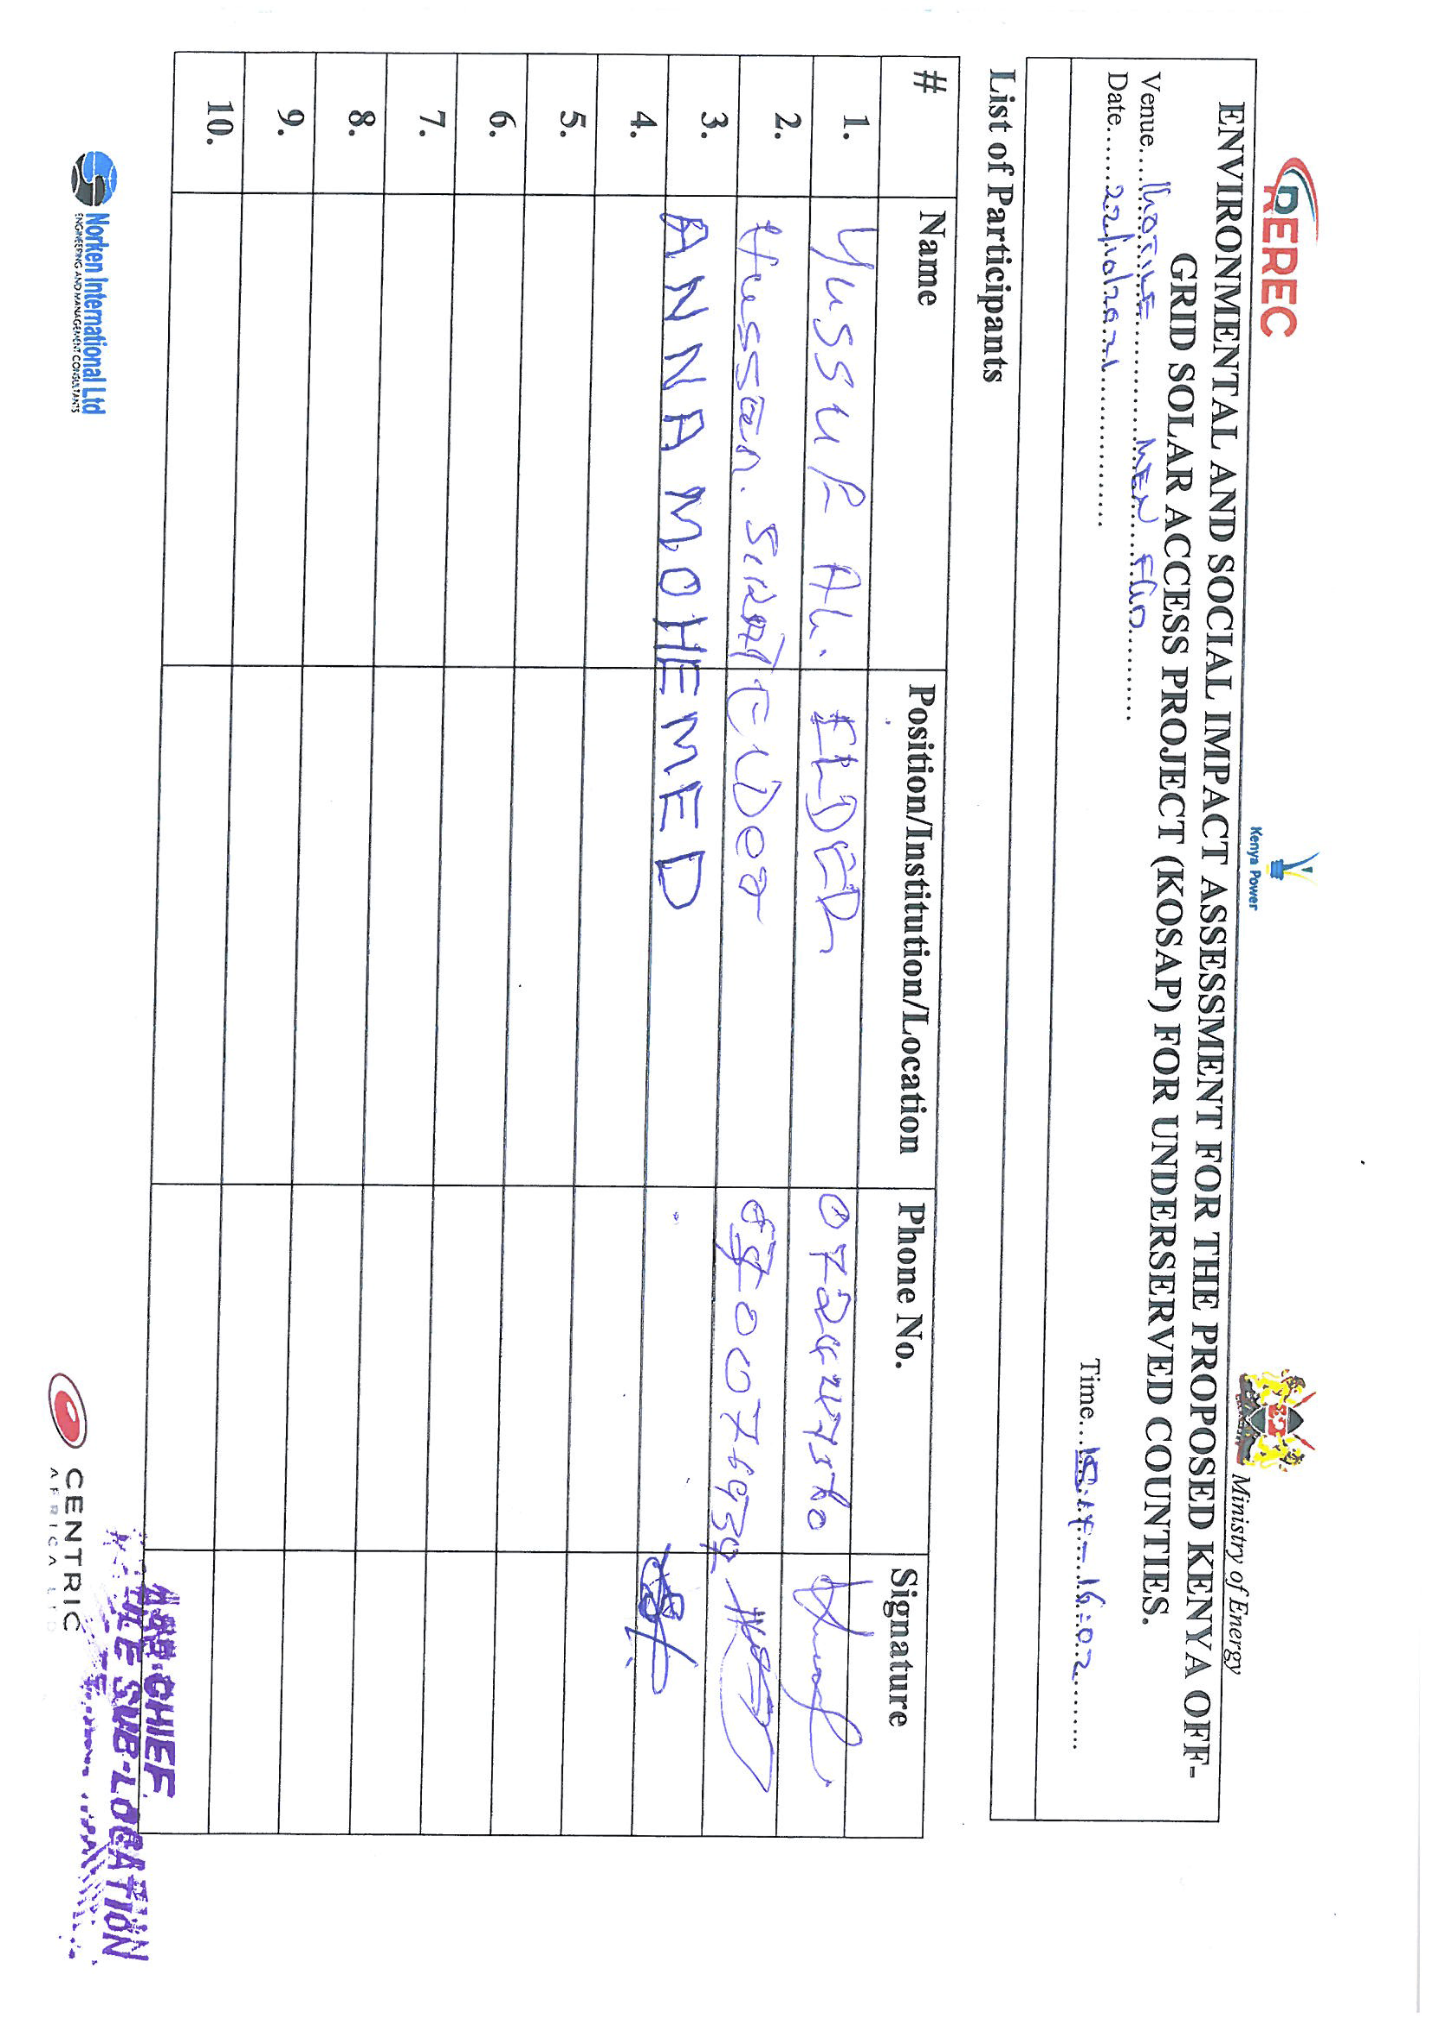 REREC
Kenya Power
Ministry of Energy
ENVIRONMENTAL AND SOCIAL IMPACT ASSESSMENT FOR THE PROPOSED KENYA OFF-
GRID SOLAR ACCESS PROJECT (KOSAP) FOR UNDERSERVED COUNTIES.
Venue.... MEN FGD
Date......22/10/2021 Time...15:14-16:02
List of Participants
# Name Position/Institution/Location Phone No. Signature
1. YUSSUF Ali. ELDER
2. Hussien. Elder
3. ANNA MOHEMED
4.
5.
6.
7.
8.
9.
10.
Norken International Ltd
ENGINEERING AND MANAGEMENT CONSULTANTS
CENTRIC
AFRICA
ASS. CHIEF
SUB-LOCATION